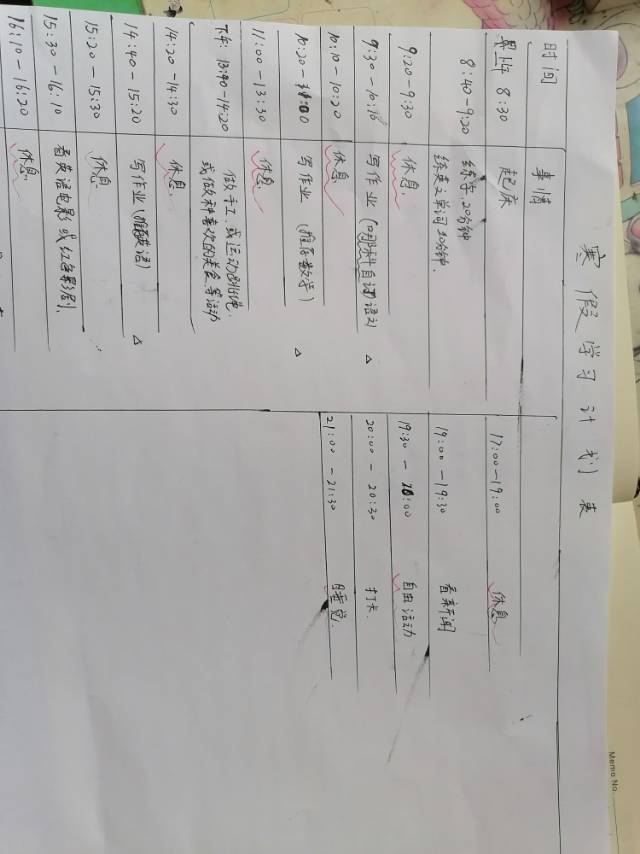 寒假学习计划表
时间 事情
早上 8:30 起床
8:40-9:20 练字 20分钟
练英文单词 20分钟.
9:20-9:30 休息
9:30-10:10 写作业 语文) △
10:10-10:20 休息
10:20-11:00 写作业 (推荐数学) △
11:00-13:30 休息
下午: 13:40-14:20 做手工 或运动跳绳.
或做种喜欢的美食等活动
14:20-14:30 休息
14:40-15:20 写作业 (推荐英语) △
15:20-15:30 休息
15:30-16:10 看英语电影 或红色影剧.
16:10-16:20 休息
17:00-19:00 休息
19:00-19:30 看新闻
19:30-20:00 自由活动
20:00-20:30 打卡
21:00-21:30 睡觉.
Memo No.